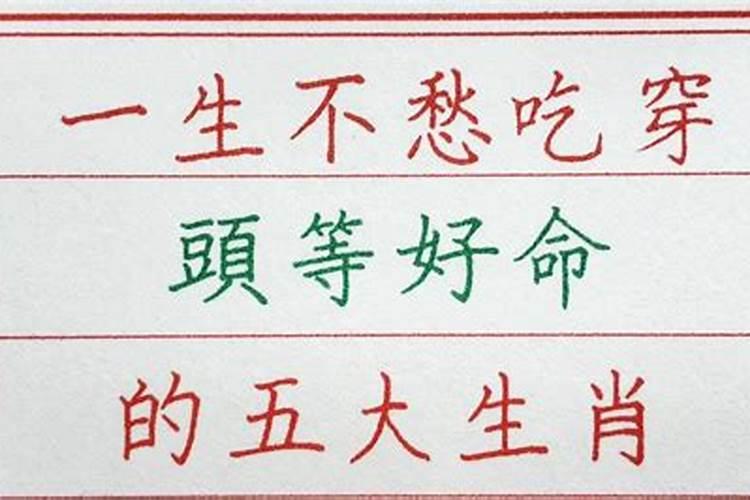 一生不愁吃穿
頭等好命
的五大生肖